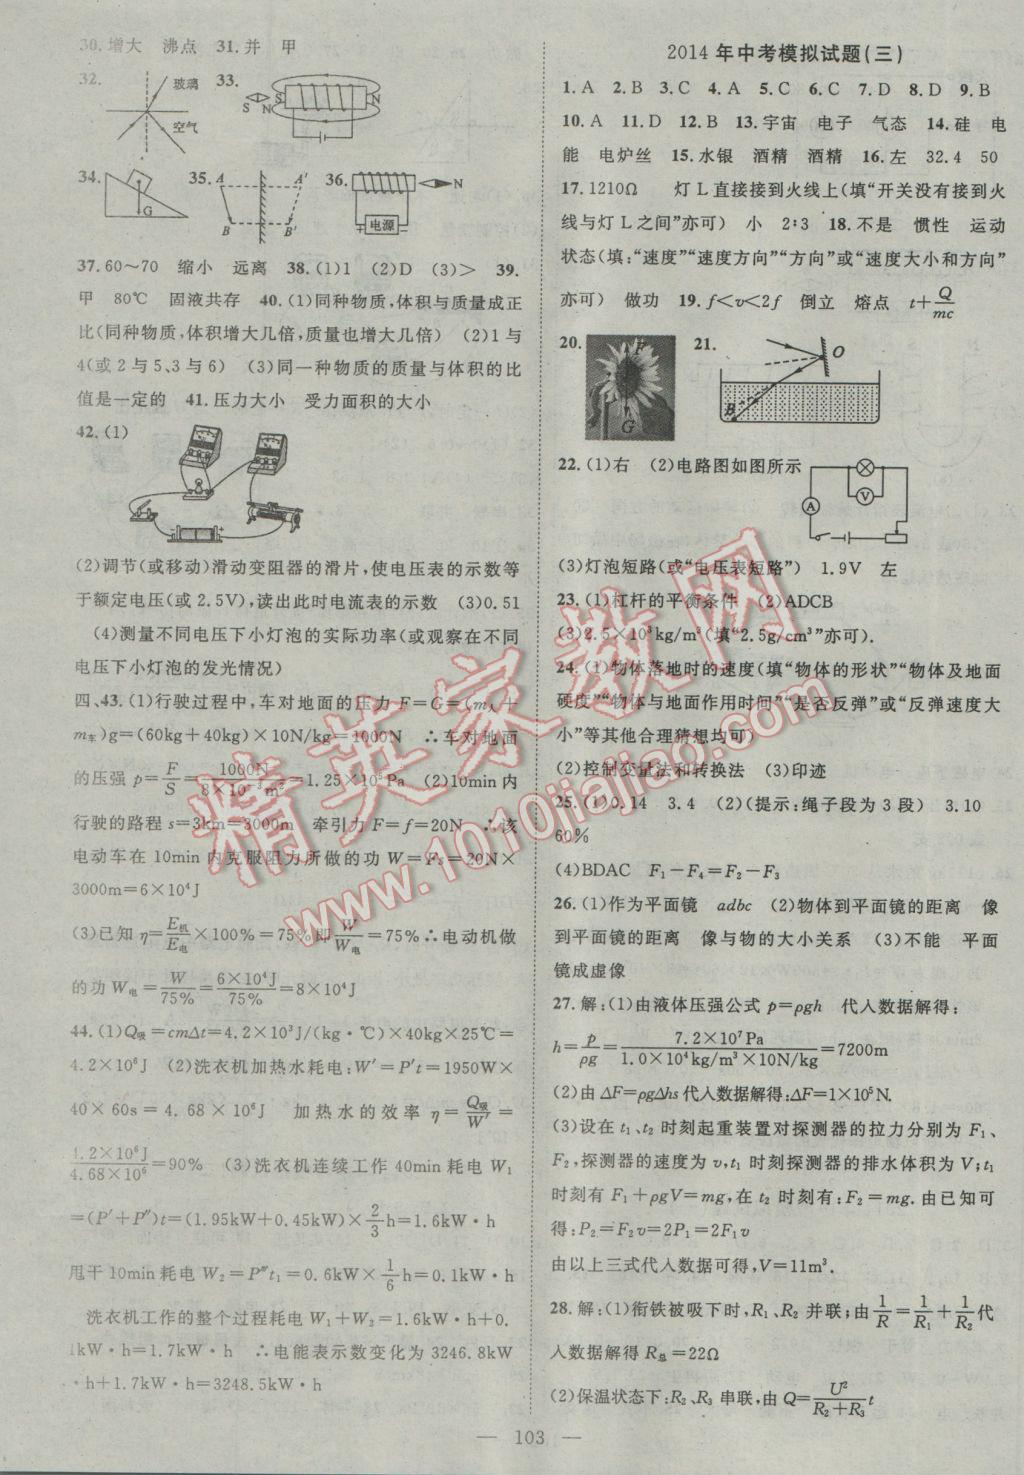 30.增大 沸点 31.并 甲
32. 玻璃 空气 33. S N S N
34. G 35. A A′ B B′ 36. N 电源
37.60～70 缩小 远离 38.(1)1 (2)D (3)> 39.
甲 80℃ 固液共存 40.(1)同种物质,体积与质量成正
比(同种物质,体积增大几倍,质量也增大几倍) (2)1与
4(或2与5、3与6) (3)同一种物质的质量与体积的比
值是一定的 41.压力大小 受力面积的大小
42.(1)
(2)调节(或移动)滑动变阻器的滑片,使电压表的示数等
于额定电压(或2.5V),读出此时电流表的示数 (3)0.51
(4)测量不同电压下小灯泡的实际功率(或观察在不同
电压下小灯泡的发光情况)
四、43.(1)行驶过程中,车对地面的压力F=G=(m人+
m车)g=(60kg+40kg)×10N/kg=1000N ∴车对地面
的压强p=F/S=1000N/8×10⁻³m²=1.25×10⁵Pa (2)10min内
行驶的路程s=3km=3000m 牵引力F=f=20N ∴该
电动车在10min内克服阻力所做的功W=Fs=20N×
3000m=6×10⁴J
(3)已知η=E机/E电×100%=75%即W/W电=75%∴电动机做
的功W电=W/75%=6×10⁴J/75%=8×10⁴J
44.(1)Q吸=cmΔt=4.2×10³J/(kg·℃)×40kg×25℃=
4.2×10⁶J (2)洗衣机加热水耗电:W′=P′t=1950W×
40×60s=4.68×10⁶J 加热水的效率η=Q吸/W′=
4.2×10⁶J/4.68×10⁶J=90% (3)洗衣机连续工作40min耗电W₁
=(P′+P″)t=(1.95kW+0.45kW)×2/3h=1.6kW·h
甩干10min耗电W₂=P‴t₁=0.6kW×1/6h=0.1kW·h
洗衣机工作的整个过程耗电W₁+W₂=1.6kW·h+0.
1kW·h=1.7kW·h ∴电能表示数变化为3246.8kW
·h+1.7kW·h=3248.5kW·h
2014年中考模拟试题(三)
1.A 2.B 3.C 4.A 5.C 6.C 7.D 8.D 9.B
10.A 11.D 12.B 13.宇宙 电子 气态 14.硅 电
能 电炉丝 15.水银 酒精 酒精 16.左 32.4 50
17.1210Ω 灯L直接接到火线上(填“开关没有接到火
线与灯L之间”亦可) 小 2:3 18.不是 惯性 运动
状态(填:“速度”“速度方向”“方向”或“速度大小和方向”
亦可) 做功 19.f<v<2f 倒立 熔点 t+Q/mc
20. F G 21. O B
22.(1)右 (2)电路图如图所示 A V
(3)灯泡短路(或“电压表短路”) 1.9V 左
23.(1)杠杆的平衡条件 (2)ADCB
(3)2.5×10³kg/m³(填“2.5g/cm³”亦可).
24.(1)物体落地时的速度(填“物体的形状”“物体及地面
硬度”“物体与地面作用时间”“是否反弹”或“反弹速度大
小”等其他合理猜想均可)
(2)控制变量法和转换法 (3)印迹
25.(1)0.14 3.4 (2)(提示:绳子段为3段) 3.10
60%
(4)BDAC F₁-F₄=F₂-F₃
26.(1)作为平面镜 adbc (2)物体到平面镜的距离 像
到平面镜的距离 像与物的大小关系 (3)不能 平面
镜成虚像
27.解:(1)由液体压强公式p=ρgh 代入数据解得:
h=p/ρg=7.2×10⁷Pa/1.0×10⁴kg/m³×10N/kg=7200m
(2)由ΔF=ρgΔhs代入数据解得:ΔF=1×10⁵N.
(3)设在t₁、t₂时刻起重装置对探测器的拉力分别为F₁、
F₂,探测器的速度为v,t₁时刻探测器的排水体积为V;t₁
时刻有F₁+ρgV=mg,在t₂时刻有:F₂=mg.由已知可
得:P₂=F₂v=2P₁=2F₁v
由以上三式代入数据可得,V=11m³.
28.解:(1)衔铁被吸下时,R₁、R₂并联;由1/R=1/R₁+1/R₂代
入数据解得R总=22Ω
(2)保温状态下:R₂、R₃串联,由Q=U²/R₂+R₃t
— 103 —
精英家教网
www.1010jiajiao.com